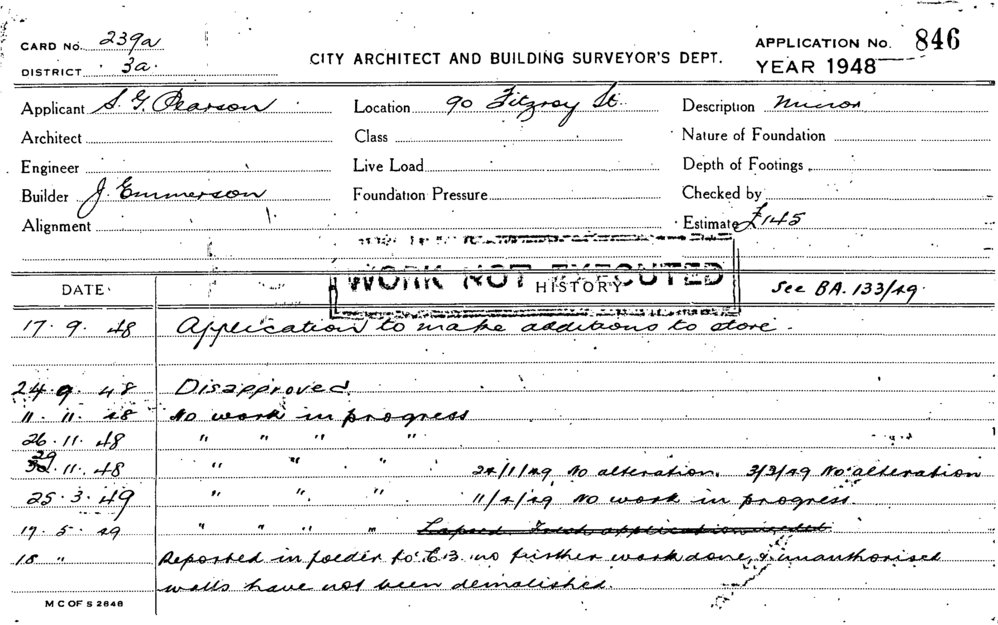 CARD No. 239a
DISTRICT 3a
CITY ARCHITECT AND BUILDING SURVEYOR'S DEPT.
APPLICATION No. 846
YEAR 1948
Applicant S. G. Pearson
Location 90 Fitzroy St.
Description Minor
Architect
Class
Nature of Foundation
Engineer
Live Load
Depth of Footings
Builder J. Emmerson
Foundation Pressure
Checked by
Alignment
Estimate £145
WORK NOT EXECUTED
DATE
HISTORY
See BA. 133/49.
17. 9. 48 Application to make additions to store.
24. 9. 48 Disapproved
11. 11. 48 No work in progress
26. 11. 48 " " " "
29. 11. 48 " " " 24/1/49 No alteration. 3/3/49 No alteration
25. 3. 49 " " " 11/4/49 No work in progress.
17. 5. 49 " " " " Lapsed Fresh application
18 " Reported in folder to no further work done, & unauthorised
walls have not been demolished.
M C OF S 2848